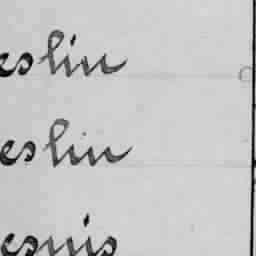 eslin
eslin
esnis